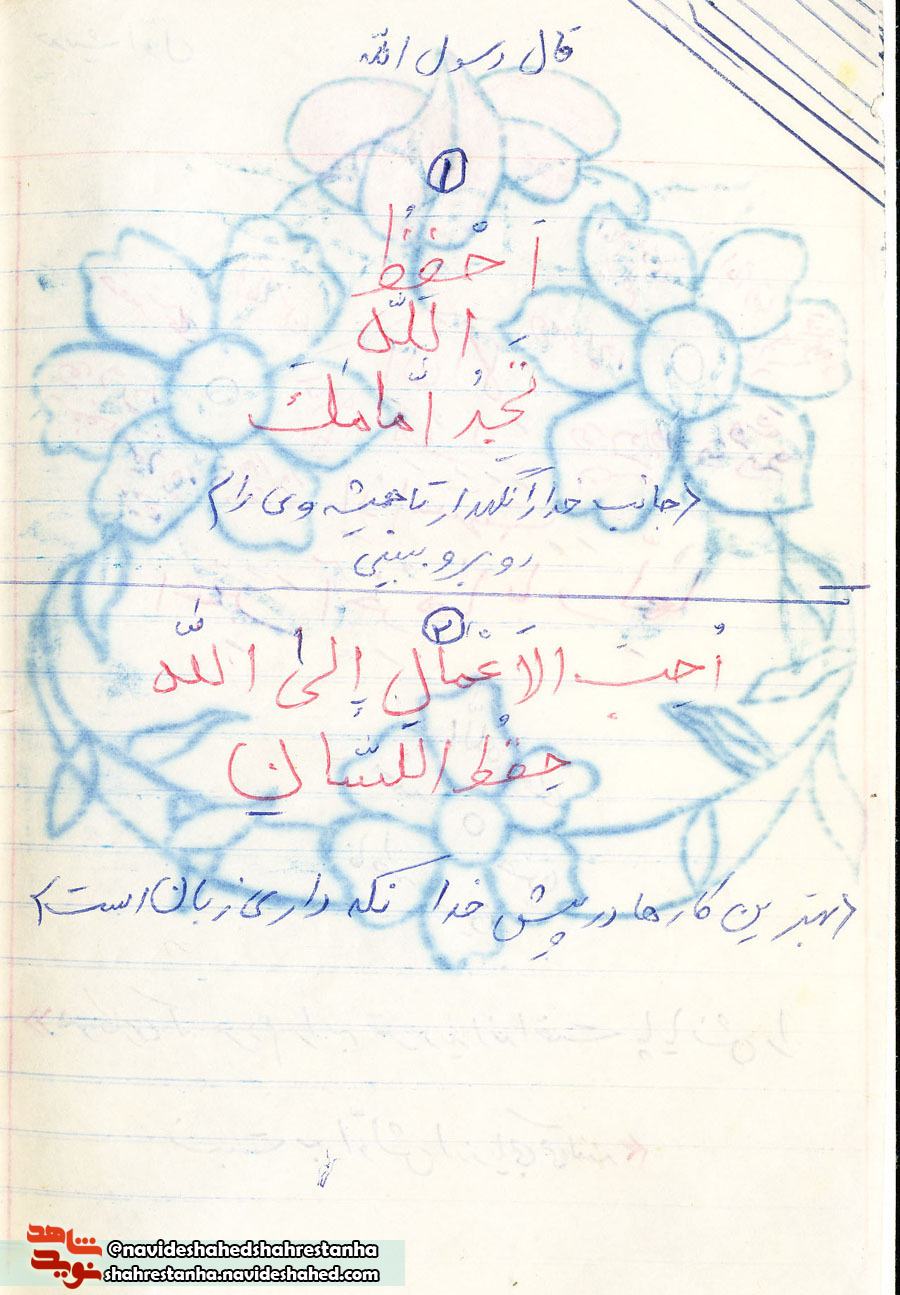 قال رسول الله
۱
اَحْفِظُ
اللّه
تَجِدُ اَمامَكَ
(جانب خدا را نگهدار تا همیشه وی را)
روبرو ببینی
۲
اُحِبَ الاَعْمالِ اِلیٰ اللّه
حِفْظُ اللِّسانِ
(بهترین کارها در پیش خدا نگه داری زبان است)
شاهد
نوید
@navideshahedshahrestanha
shahrestanha.navideshahed.com